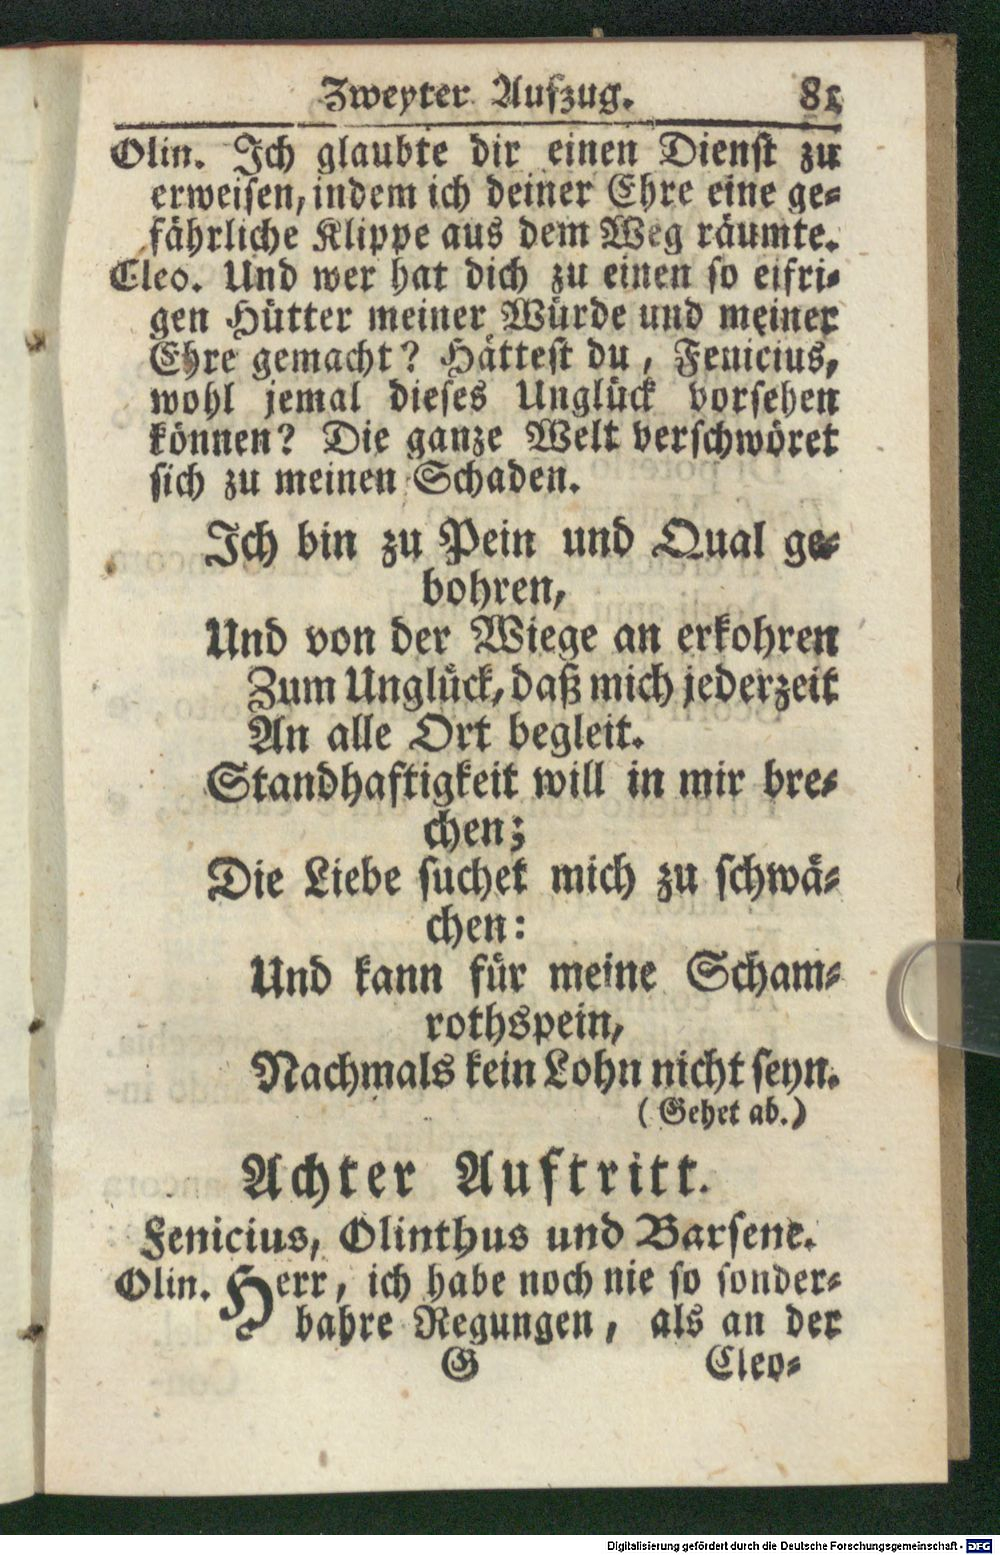 Zweyter Aufzug. 81
Olin. Ich glaubte dir einen Dienst zu
erweisen, indem ich deiner Ehre eine ge-
fährliche Klippe aus dem Weg räumte.
Cleo. Und wer hat dich zu einen so eifri-
gen Hütter meiner Würde und meiner
Ehre gemacht? Hättest du, Fenicius,
wohl jemal dieses Unglück vorsehen
können? Die ganze Welt verschwöret
sich zu meinen Schaden.
Ich bin zu Pein und Qual ge-
bohren,
Und von der Wiege an erkohren
Zum Unglück, daß mich jederzeit
An alle Ort begleit.
Standhaftigkeit will in mir bre-
chen;
Die Liebe suchet mich zu schwä-
chen:
Und kann für meine Scham-
rothspein,
Nachmals kein Lohn nicht seyn.
(Gehet ab.)
Achter Auftritt.
Fenicius, Olinthus und Barsene.
Olin. Herr, ich habe noch nie so sonder-
bahre Regungen, als an der
G Cleo-
Digitalisierung gefördert durch die Deutsche Forschungsgemeinschaft - DFG